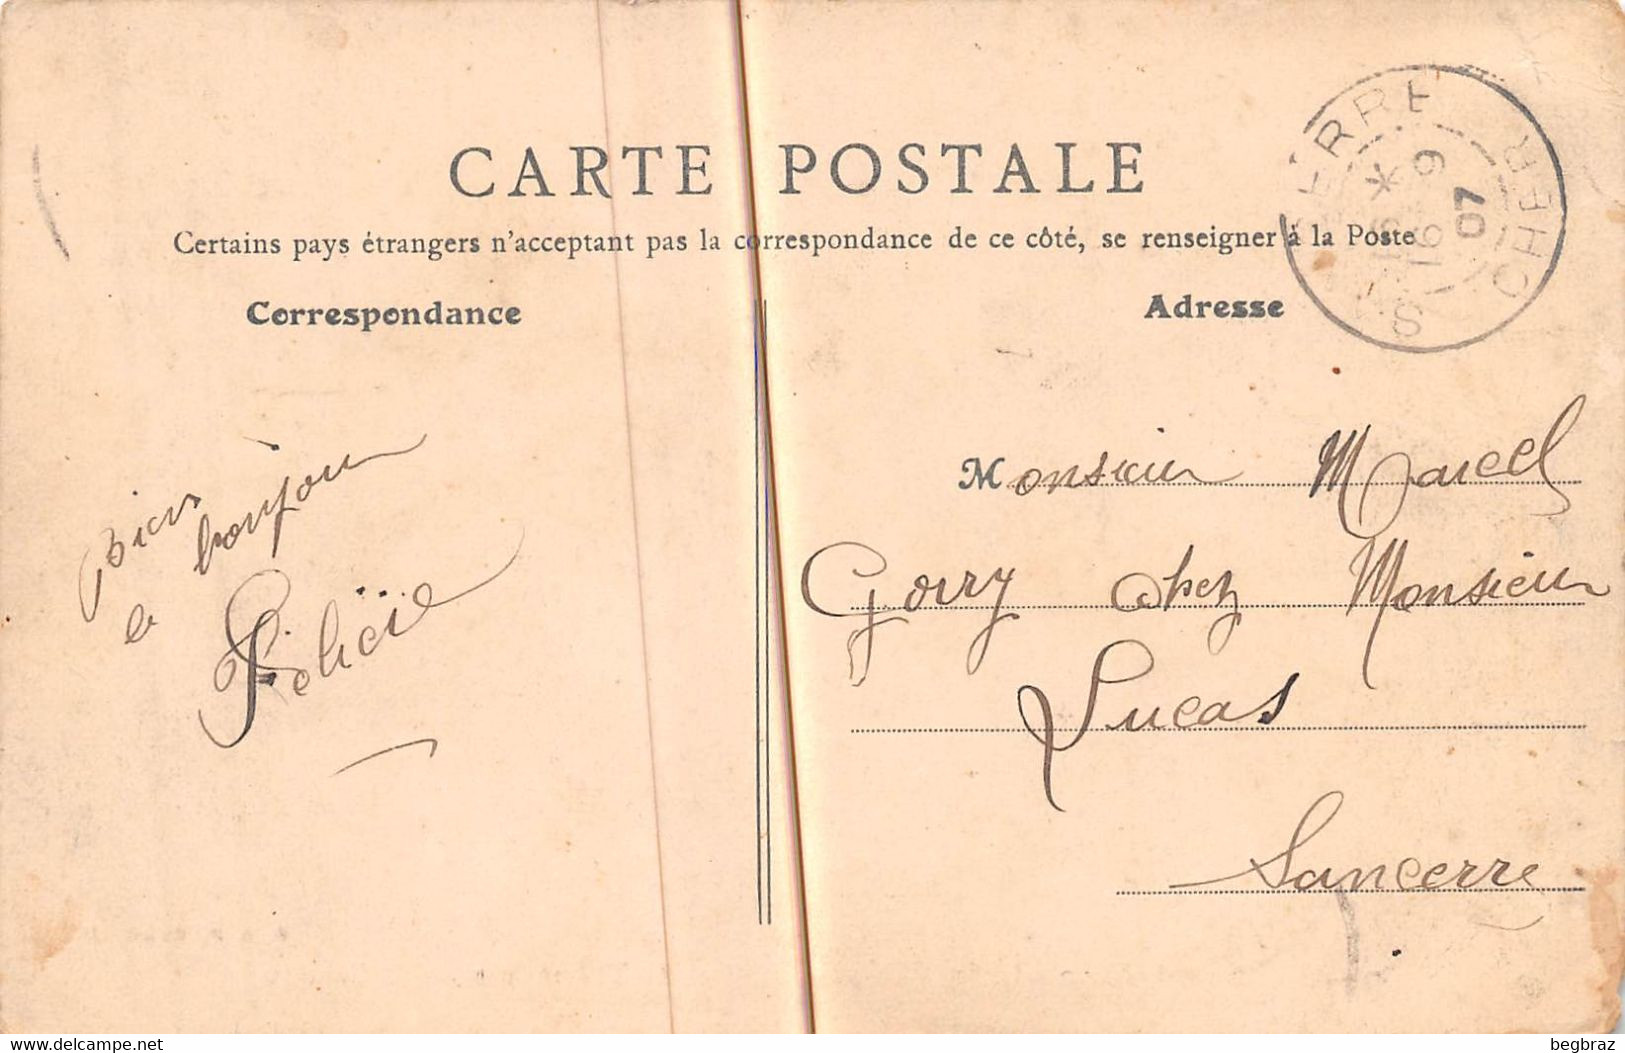 CARTE POSTALE
Certains pays étrangers n'acceptant pas la correspondance de ce côté, se renseigner à la Poste
Correspondance
Adresse
SANCERRE
CHER
16
9
07
Bien
le bonjour
Félicie
Monsieur Marcel
Gorry chez Monsieur
Lucas
Sancerre
www.delcampe.net
begbraz